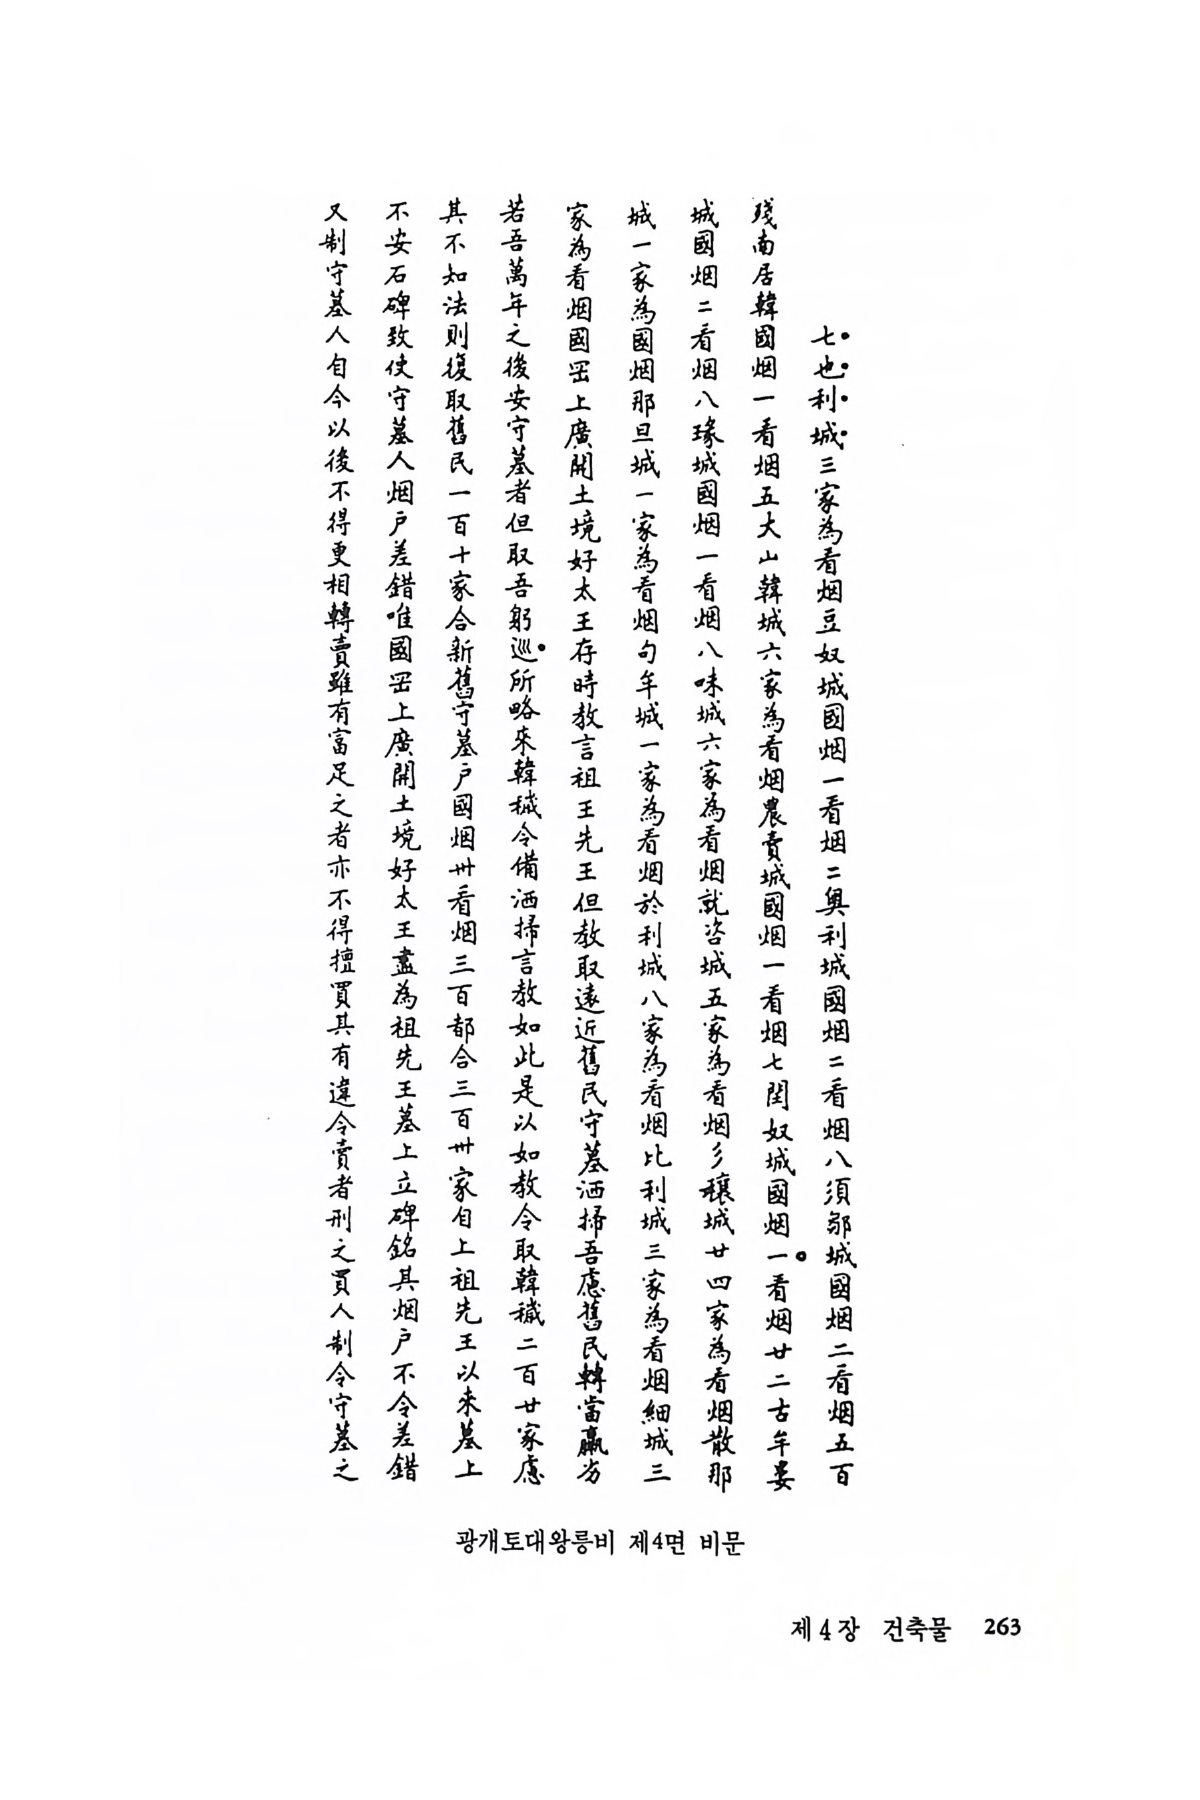 七也利城三家為看烟豆奴城國烟一看烟二奥利城國烟二看烟八須鄒城國烟二看烟五百
殘南居韓國烟一看烟五大山韓城六家為看烟農賣城國烟一看烟七閏奴城國烟一看烟廿二古牟婁
城國烟二看烟八瑑城國烟一看烟八味城六家為看烟就咨城五家為看烟彡穰城廿四家為看烟散那
城一家為國烟那旦城一家為看烟句牟城一家為看烟於利城八家為看烟比利城三家為看烟細城三
家為看烟國罡上廣開土境好太王存時教言祖王先王但教取遠近舊民守墓洒掃吾慮舊民轉當羸劣
若吾萬年之後安守墓者但取吾躬巡所略来韓穢令備洒掃言教如此是以如教令取韓穢二百廿家慮
其不知法則復取舊民一百十家合新舊守墓户國烟卅看烟三百都合三百卅家自上祖先王以来墓上
不安石碑致使守墓人烟户差錯唯國罡上廣開土境好太王盡為祖先王墓上立碑銘其烟户不令差錯
又制守墓人自今以後不得更相轉賣雖有富足之者亦不得擅買其有違令賣者刑之買人制令守墓之
광개토대왕릉비 제4면 비문
제4장 건축물 263